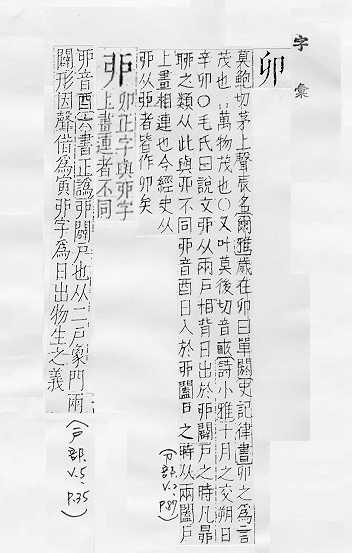 字彙
卯
莫鮑切茅上聲辰名爾雅歲在卯曰單閼史記律書卯之爲言
茂也言萬物茂也〇又叶莫後切音畝詩小雅十月之交朔日
辛卯〇毛氏曰說文戼从兩戶相背日出於戼闢戶之時凡昴
聊之類从此與丣不同丣音酉日入於丣闔戶之時从兩闔戶
上畫相連也今經史从
戼从丣者皆作卯矣
(卩部. V.2. P.89)
戼
卯正字與丣字
上畫連者不同
丣音酉六書正譌戼闢戶也从二戶象門兩
闢形因聲借爲寅戼字爲日出物生之義
(戶部. V.5. P.35)